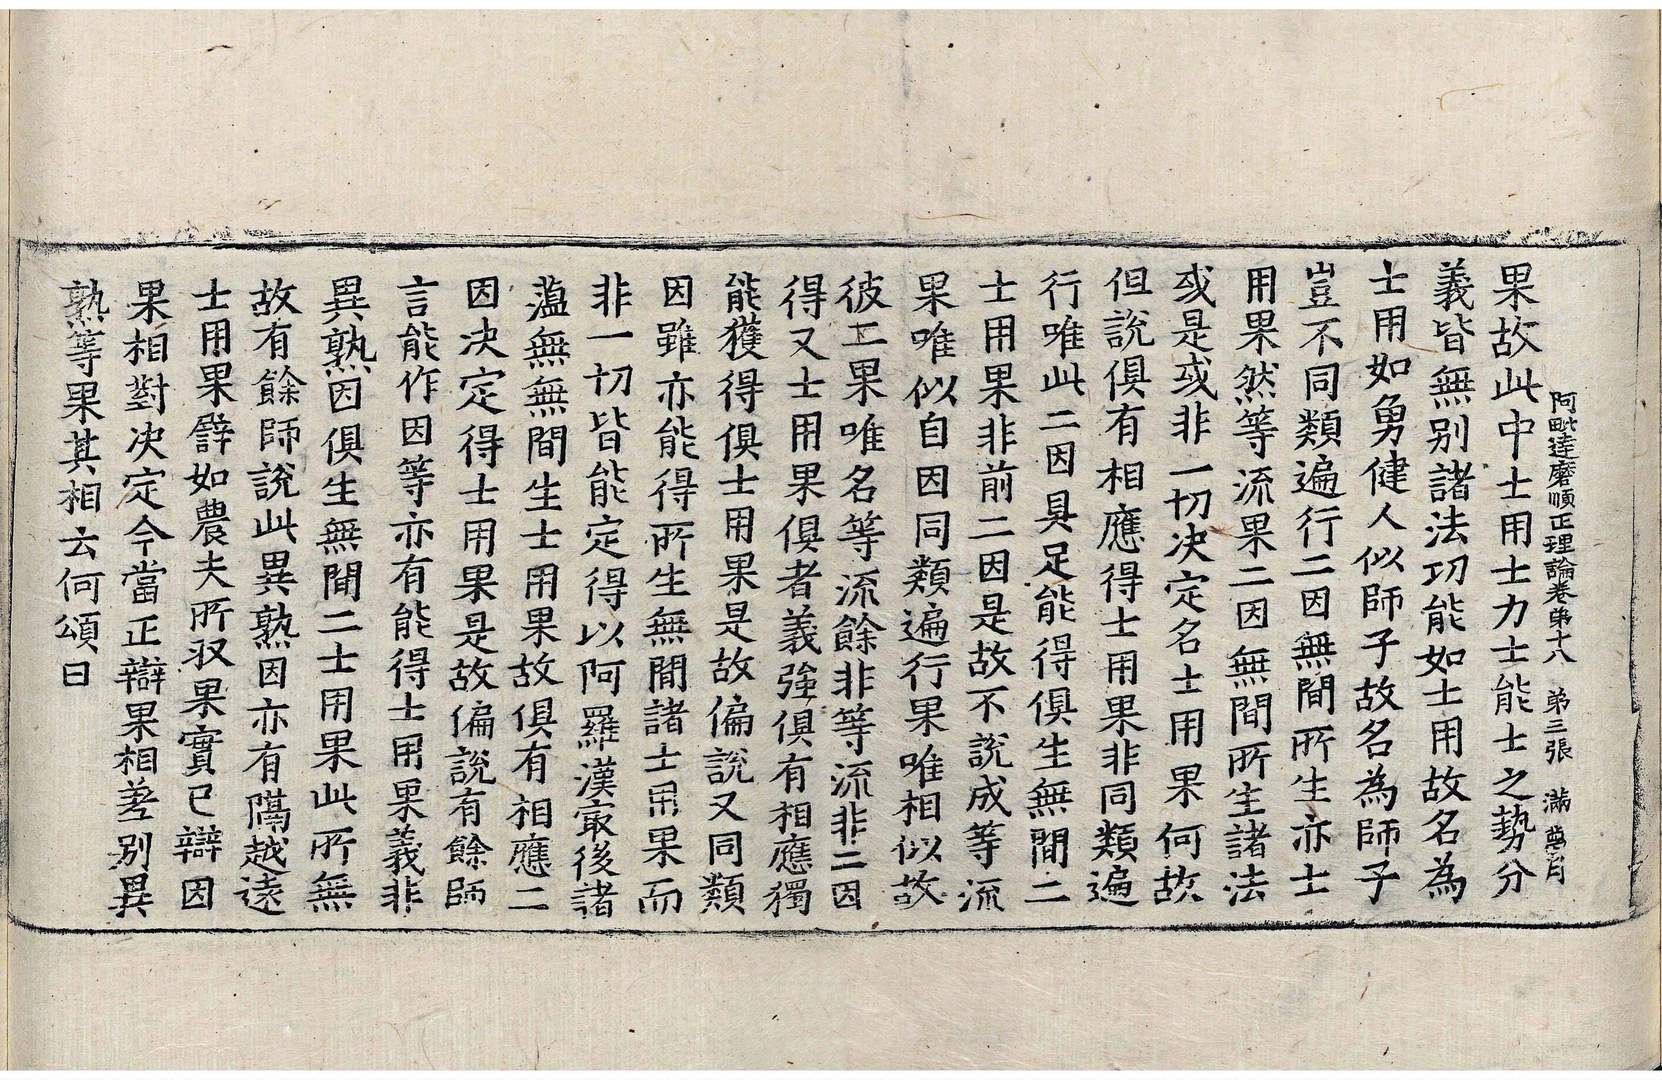 阿毗達磨順正理論卷第十八　第三張　滿
果故此中士用士力士能士之勢分
義皆無别諸法功能如士用故名為
士用如勇健人似師子故名為師子
豈不同類遍行二因無間所生亦士
用果然等流果二因無間所生諸法
或是或非一切决定名士用果何故
但說俱有相應得士用果非同類遍
行唯此二因具足能得俱生無間二
士用果非前二因是故不說成等流
果唯似自因同類遍行果唯相似故
彼二果唯名等流餘非等流非二因
得又士用果俱者義強俱有相應獨
能獲得俱士用果是故偏說又同類
因雖亦能得所生無間諸士用果而
非一切皆能定得以阿羅漢㝡後諸
薀無無間生士用果故俱有相應二
因决定得士用果是故偏說有餘師
言能作因等亦有能得士用果義非
異熟因俱生無間二士用果此所無
故有餘師說此異熟因亦有隔越遠
士用果譬如農夫所收果實已辯因
果相對决定今當正辯果相差别異
熟等果其相云何頌曰